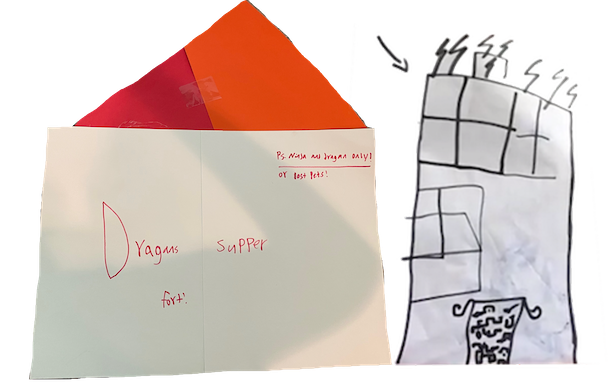 Ps. Ninja and dragan only!
or lost Pets!
Dragans supper
fort!